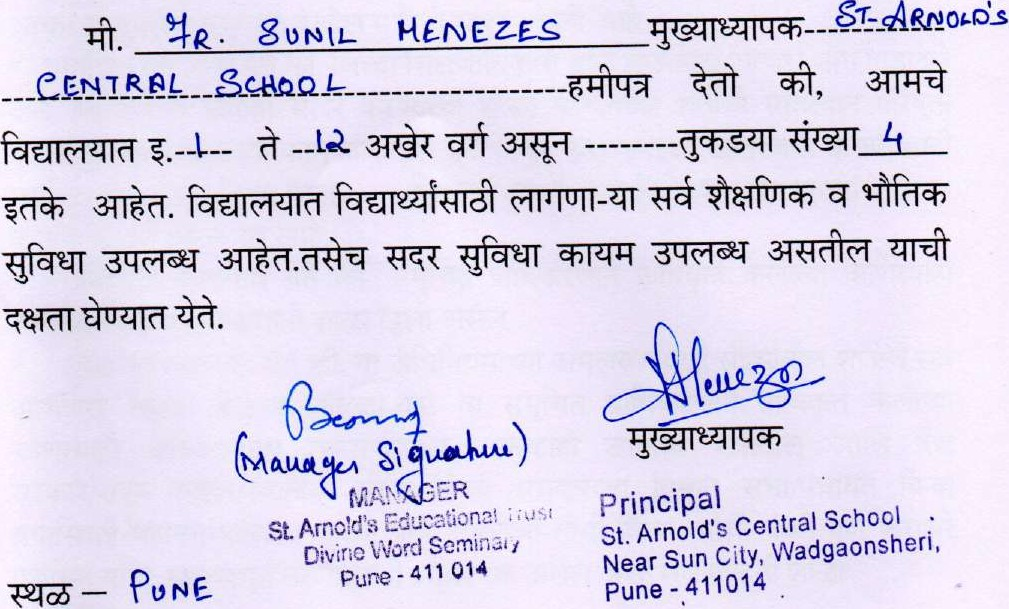 मी. FR. SUNIL MENEZES मुख्याध्यापक ST. ARNOLD'S
CENTRAL SCHOOL हमीपत्र देतो की, आमचे
विद्यालयात इ. 1 ते 12 अखेर वर्ग असून तुकडया संख्या 4
इतके आहेत. विद्यालयात विद्यार्थ्यांसाठी लागणा-या सर्व शैक्षणिक व भौतिक
सुविधा उपलब्ध आहेत.तसेच सदर सुविधा कायम उपलब्ध असतील याची
दक्षता घेण्यात येते.
(Manager Signature)
MANAGER
St. Arnold's Educational Trust
Divine Word Seminary
Pune - 411 014
Menezes
मुख्याध्यापक
Principal
St. Arnold's Central School
Near Sun City, Wadgaonsheri,
Pune - 411014
स्थळ – PUNE